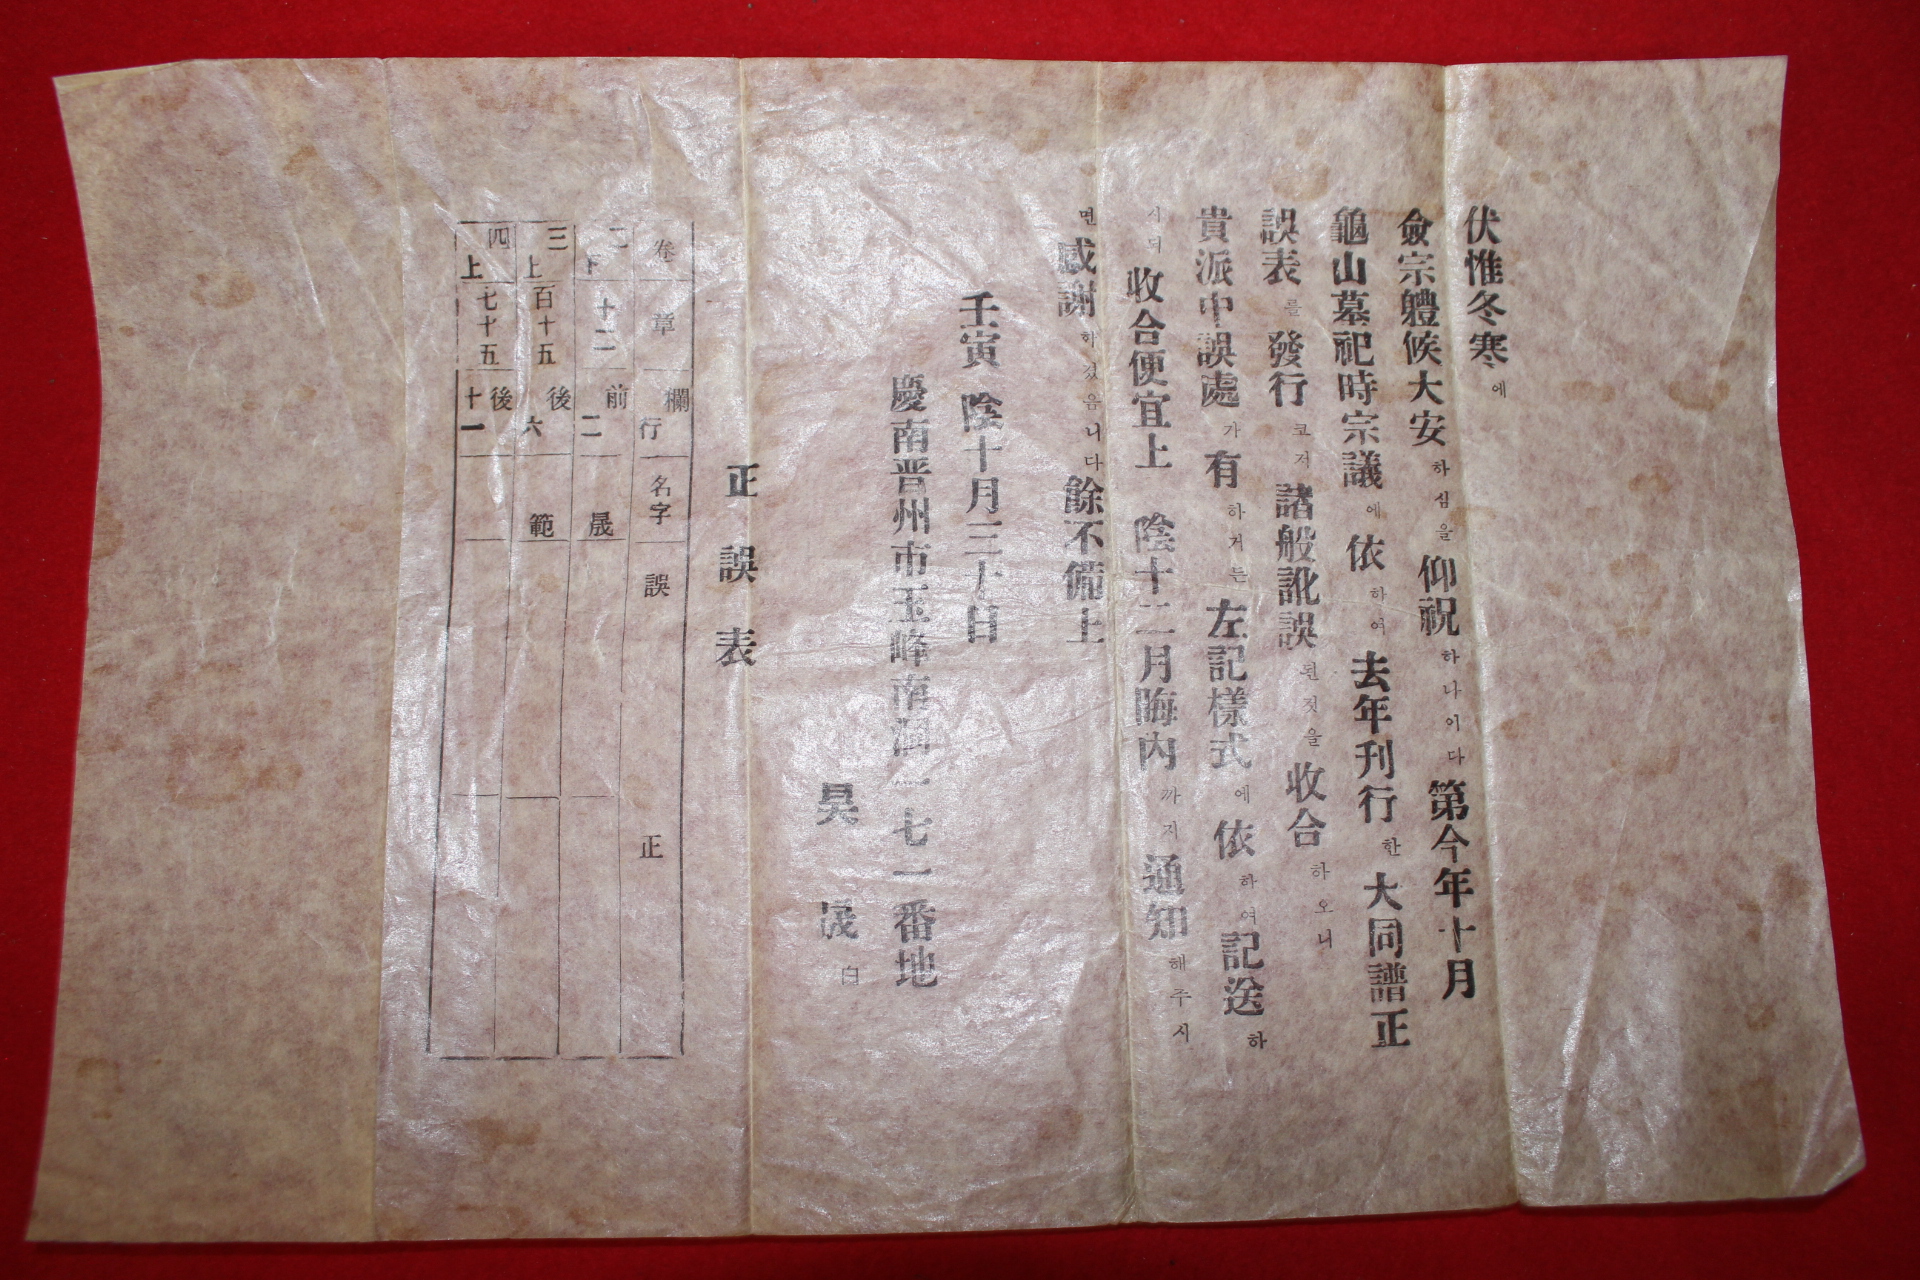 伏惟冬寒에
僉宗體候大安하심을 仰祝하나이다 第今年十月
龜山墓祀時宗議에 依하여 去年刊行한 大同譜正
誤表를 發行코저 諸般訛誤된것을 收合하오니
貴派中誤處가 有하거든 左記樣式에 依하여 記送하
시되 收合便宜上 陰十二月晦內까지 通知해주시
면 感謝하겠음니다 餘不備上
壬寅 陰十月三十日
慶南晋州市玉峰南洞一七一番地
昊 晟 白
正誤表
卷 章 欄 行 名字 誤 正
二下 十二 前 二 晟
三上 百十五 後 六 範
四上 七十五 後 十一